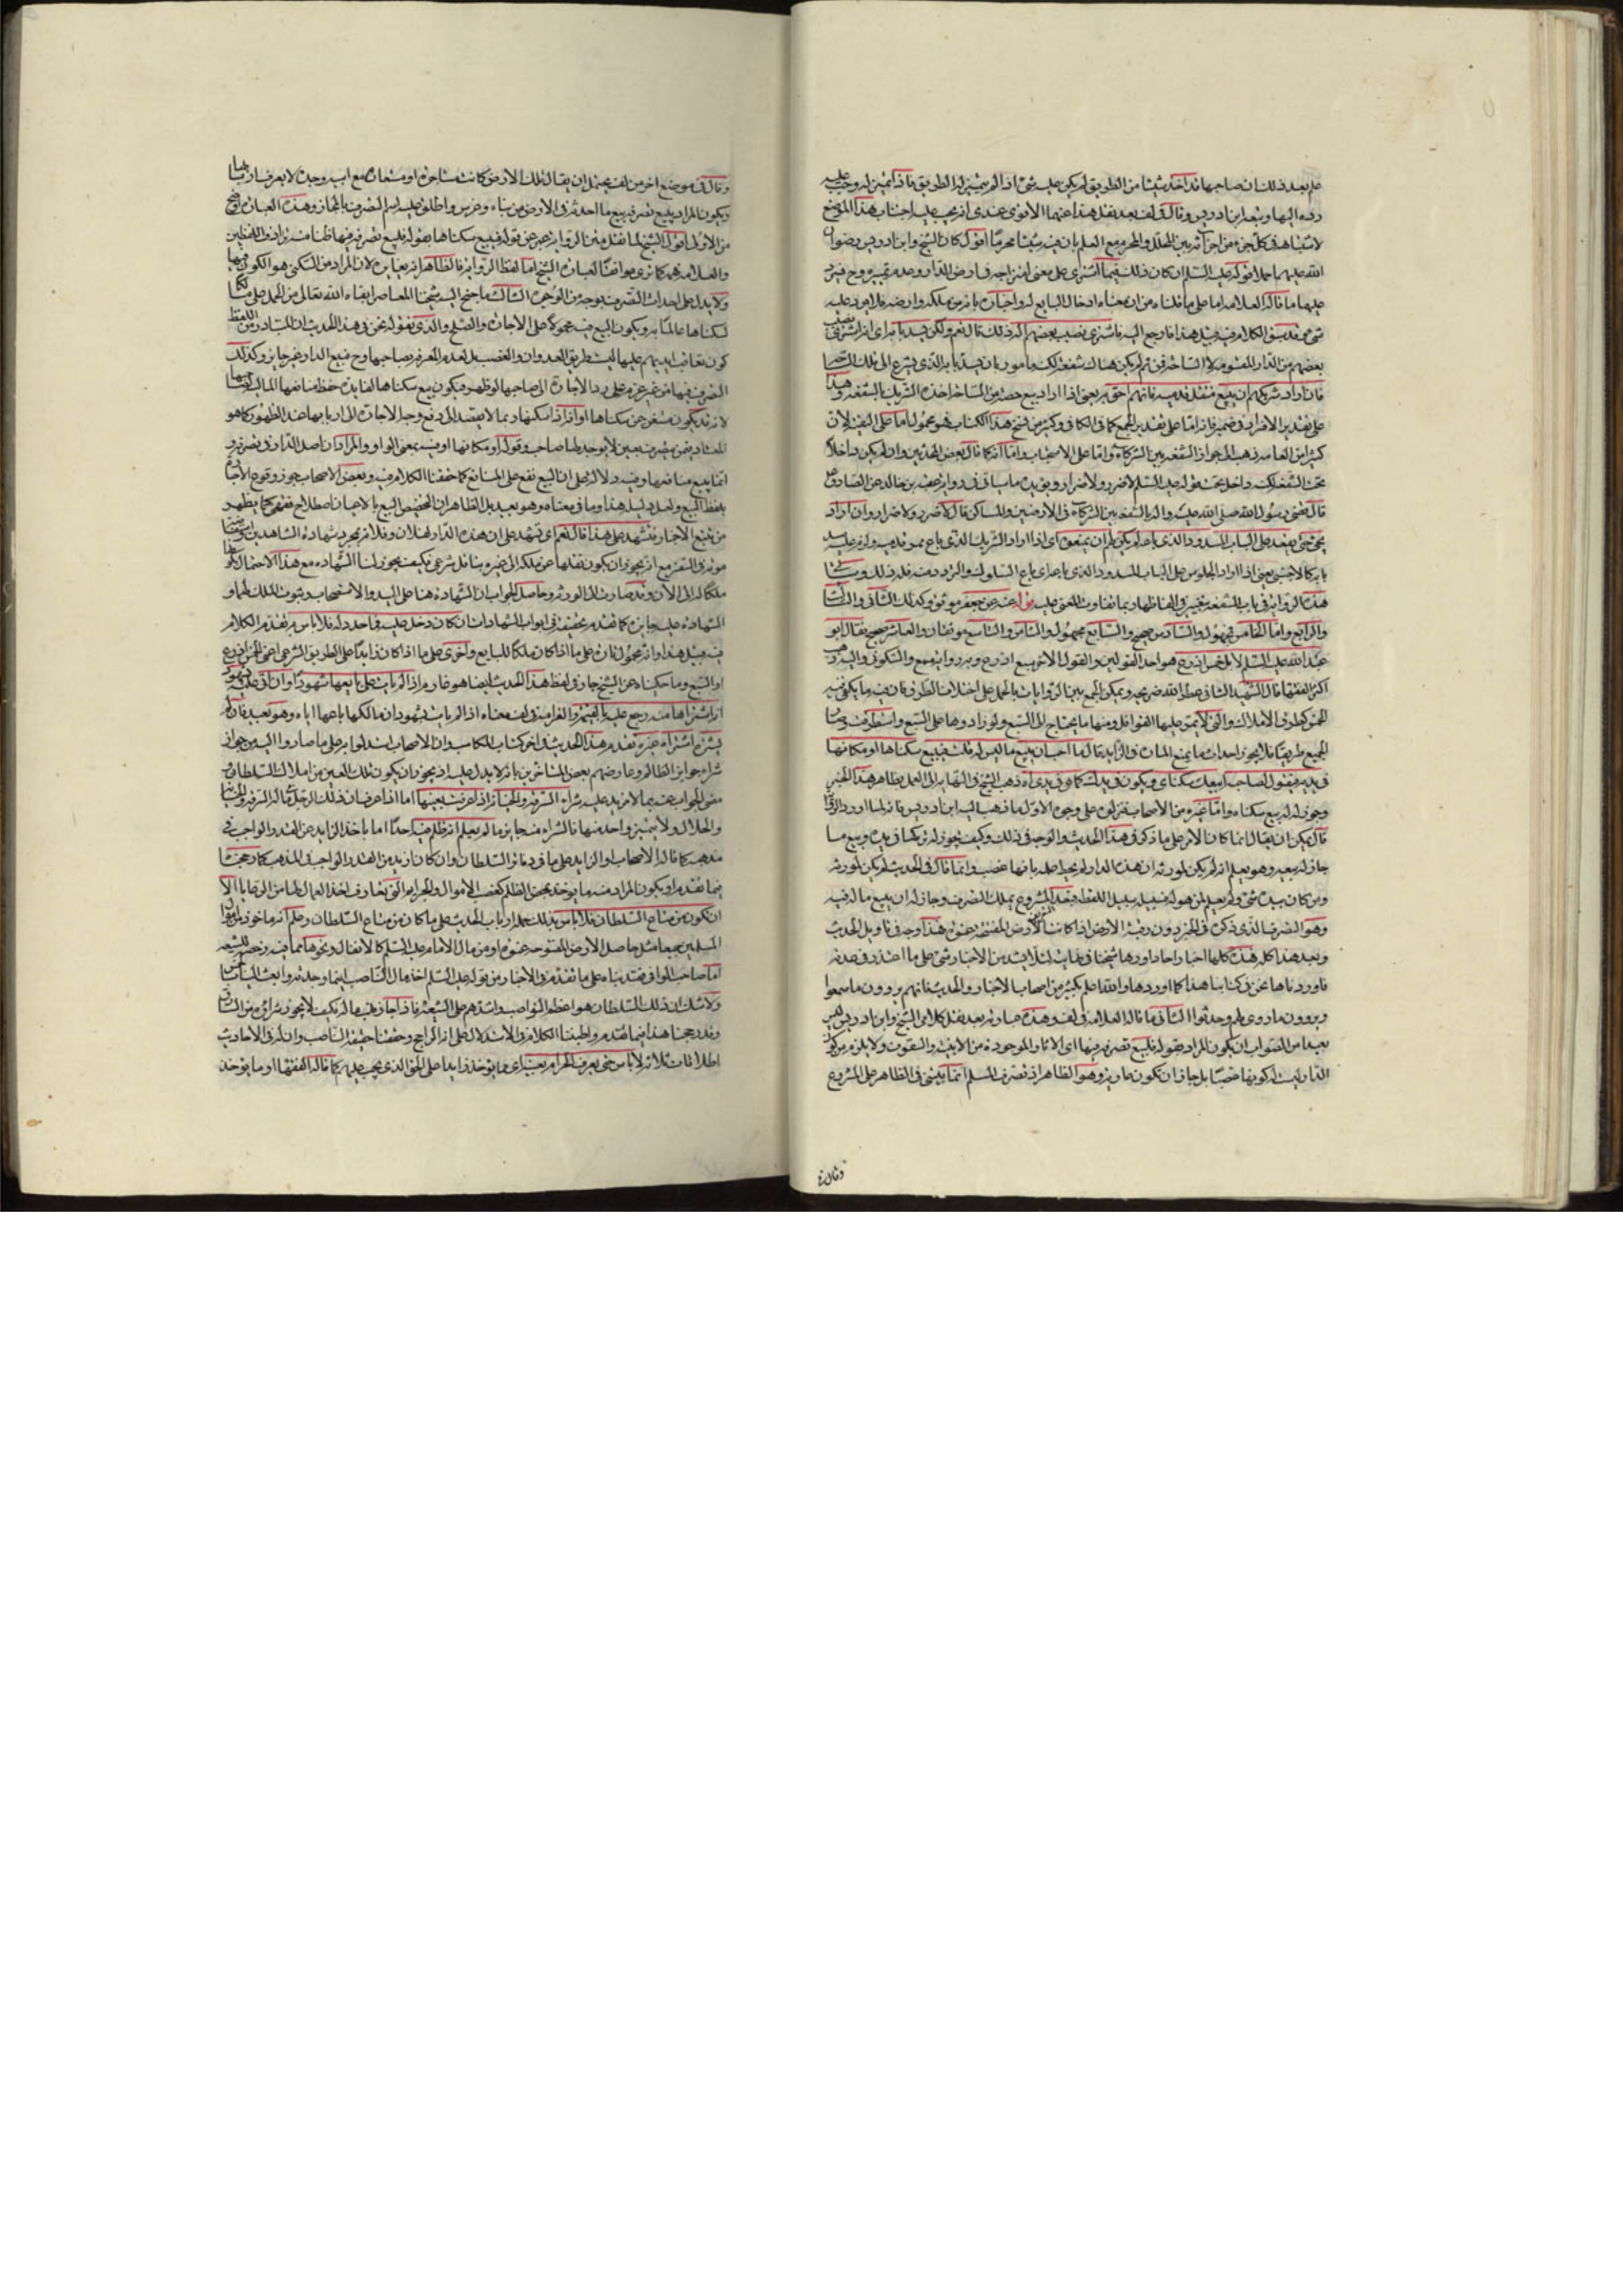 علم بعد ذلك ان صاحبها قد اخذ شيئا من الطريق لم يكن عليه شئ اذا لم يتميز له الطريق فاذا تميز له وجب عليه
رده اليها وتبعه ابن ادريس وقال في لف بعد نقل هذا عنهما الاقوى عندي انه يجب عليه اجتناب هذا الموضع
لاشتباهه في كل جزء من اجزائه بين المحلل والمحرم مع العلم بان فيه شيئا محرما اقول كان الشيخ وابن ادريس رضوان
الله عليهما حملا قوله عليه السلم ان كان ذلك فيما اشترى على معنى امتزاجه في ارض الدار وعدم تميزه وح فيرد
عليهما ما قاله العلامه اما على ما قلناه من ان معناه ادخال البايع له واخباره بانه من ملكه وارضه فلا يرد عليه
شئ وقد سبق الكلام فيه قبل هذا فارجع اليه فاشترى نصيب بعضهم اله ذلك قال نعم ولكن يسد بابه اي اذا اشترى نصيب
بعضهم من الدار المقسومة لا الساحة فمن ثم لم يكن هناك شفعة لكنه مامور بان يسد بابه الذي يشرع الى تلك الساحة
فان اراد شريكهم ان يبيع منقل قدميه فانهم احق به يعني اذا اراد بيع حصته من الساحة اخذه الشريك بالشفعه وهذا
على تقدير الافراد في ضمير فانه اما على تقدير الجمع كما في الكافي وكثير من نسخ هذا الكتاب فهو محمول اما على التقيه لان
كثيرا من العامه ذهب الى جواز الشفعه بين الشركاء واما على الاستحباب واما انه كما قال بعض المحدثين وان لم يكن داخلا
تحت الشفعه لكنه داخل تحت قوله عليه السلم لا ضرر ولا ضرار ويؤيده ما سياتي في رواية عقبه بن خالد عن الصادق ع
قال قضى رسول الله صلى الله عليه واله بالشفعه بين الشركاء في الارضين والمساكن قال لا ضرر ولا ضرار وان اراد
يجئ حتى يقعد على الباب المسدود الذي باعه لم يكن لهم ان يمنعوه اي اذا اراد الشريك الذي باع ممر قدميه وانه عليه سد
بابه كالاجنبي يعني اذا اراد الجلوس على الباب المسدود الذي باعه اي باع السلوك والتردد منه فله ذلك وسياتي
هذه الرواية في باب الشفعه بتغيير في الفاظها ربما تفاوت المعنى عليه قوله عنه عن جعفر موثق وكذلك الثاني والثالث
والرابع واما الخامس فمجهول والسادس صحيح والسابع مجهول والثامن والتاسع موثقان والعاشر صحيح فقال ابو
عبد الله عليه السلم لا بل خمس اذرع هو احد القولين والقول الاخر سبع اذرع وبه رواية مسمع والسكوني واليه ذهب
اكثر الفقها قال الشهيد الثاني عطر الله ضريحه ويمكن الجمع بين الروايات بالحمل على اختلاف الطرق فان فيه ما يكفي فيه
الخمس كطرق الاملاك والتي لا يمر عليها القوافل ومنها ما يحتاج الى السبع ولو زادوها على السبع واستطرقت
الجميع طريقا فلا يجوز احداث ما يمنع المارة في الزايد قال ما احب ان يبيع ما ليس له قلت فيبيع سكناها او مكانها
في يديه فيقول لصاحبه ابيعك سكناي ويكون في يدك كما هي في يدي اه ذهب الشيخ في النهاية الى العمل بظاهر هذا الخبر
وجوز له بيع سكناه واما غيره من الاصحاب فنزلوه على وجوه الاول ما ذهب اليه ابن ادريس فانه لما اورد الرواية
قال يمكن ان يقال انما كان الامر على ما ذكر في هذا الحديث والوجه في ذلك وكيف يجوز له تركها في يده وبيع ما
جاز له بيعه وهو يعلم انه لم يكن لمورثه ان هذه الدار لم يحط علمه بانها غصب وانما قال في الحديث لم يكن لمورثه
ومن كان بيده شئ ولم يعلم لمن هو له فسبيله سبيل اللقطه فبعد المشروع يملك التصرف وجاز له ان يبيع ما له فيه
وهو التصرف الذي ذكره في الخبر دون رقبة الارض اذا كانت الارض المفتتحة عنوة هذا وجه في تاويل الحديث
وبعد هذا كله هذه كلها اخبار احاد اوردها شيخنا في نهايته لئلا يشذ من الاخبار شئ على ما اعتذر في عدته
فاوردناها نحن في كتابنا هذا كما اوردها والله اعلم بكثير من اصحاب الاخبار والحديث فانهم يروون ما سمعوا
ويروون ما روى لهم وحدثوا الثاني ما قاله العلامة في لف وهذه عبارته بعد نقل كلامي الشيخ وابن ادريس ليس
بعيدا من الصواب ان يكون المراد بقوله فليبع تصرفه فيها اي الاثار الموجودة من الابنيه والسقوف ولا يلزم من كون
الدار ليست له كونها غصبا بل جاز ان تكون عارية وهو الظاهر اذ تصرف المسلم انما يبنى في الظاهر على المشروع
وقال في
وقال في موضع اخر من لف يحتمل ان يقال تلك الارض كانت مستاجرة او مستعارة مع ابيه وجده لا يعرف اربابها
ويكون المراد ببيع تصرفه بيع ما احدثه في الارض من بناء وغرس واطلق عليه اسم التصرف بالمجاز وهذه العبارة اوضح
من الاولى اقول الشيخ لما نقل متن الرواية عبر عن قوله فيبيع سكناها بقوله فليبع تصرفه فيها ظنا منه ترادف اللفظين
والعلامة فهم كما ترى موافقا لعبارة الشيخ اما لفظ الرواية فالظاهر انه يغايره لان المراد من السكنى هو الكون فيها
ولا يدل على احداث التصرف بوجه من الوجوه الثالث ما جنح اليه شيخنا المعاصر ابقاه الله تعالى من الحمل على
لسكناها عالما به ويكون البيع فيه محمولا على الاجارة والصلح والذي نقوله نحن في هذا الحديث ان المتبادر من اللفظ
كون تعاقب ايديهم عليها ليس طريق العدوان والغصب بل لعدم المعرفة بصاحبها وح فبيع الدار غير جايز وكذلك
التصرف فيها من غير عزم على رد الاجارة الى صاحبها لو ظهر فيكون بيع سكناها لفايدة حفظ منافعها لمالكها
لانه قد يكون مستغن عن سكناها او انه اذا سكنها ربما لا يقصد الى دفع وجه الاجارة الى اربابها عند الظهور كما هو
المعتاد فمن يتصرف بعين لا يوجد لها صاحب وقوله او مكانها او فيه بمعنى الواو والمراد ان اصل الدار في تصرفه و
انما يبيع منافعها وفيه دلالة على ان البيع تقع على المنافع كما حققنا الكلام فيه وبعض الاصحاب جوز وقوع الاجارة
بلفظ البيع ولعل دليله هذا وما في معناه وهو بعيد بل الظاهر ان تخصيص البيع بالاعيان اصطلاح فقهي كما يظهر
من تتبع الاخبار فنشهد على هذا قال نعم اي نشهد على ان هذه الدار لفلان وفلان بمجرد شهادة الشاهدين
مع انه يجوز ان يكون نقلها عن ملكه الى غيره بناقل شرعي فكيف يجوز لنا الشهاده مع هذا الاحتمال
ملكا له الى الان وقد صارت الى الورثه وحاصل الجواب ان الشهادة هنا على اليد والاستصحاب وثبوت الملك لهما و
الشهادة عليه جايزه كما تقدم تحقيقه في ابواب الشهادات ان كان دخل عليه في احد دله فلا باس به تقدم الكلام
فيه قبل هذا وانه محمول تارة على ما اذا كان ملكا للبايع واخرى على ما اذا كان زايدا على الطريق الشرعي اعني الخمس اذرع
او السبع وما حكيناه عن الشيخ جار في لفظ هذا الحديث ايضا هو غارم اذا لم يات على بايعها شهودا وان اتى عليه شهود
انه اشتراها منه رجع عليه بالقيمة والغرامة في لف معناه اذا لم يات بشهود ان مالكها باعها اياه وهو بعيد فان لم
يشتره اشتراه غيره تقدم هذا الحديث في اخر كتاب المكاسب وان الاصحاب استدلوا به على ما صاروا اليه من جواز
شراء جوايز الظالم وعارضهم بعض المتاخرين بانه لا يدل عليه اذ يجوز ان يكون تلك العين من املاك السلطان و
مضى الجواب عنه بما لا مزيد عليه شراء السرقة والخيانة اذا عرفت بعينها اما اذا عرضا من ذلك الرجل ماله السرقة والخيانة
والحلال ولا يتميز واحد منها فالشراء منه جايز ما لم يعلم انه ظلم فيه احدا اما باخذ الزايد عن القدر الواجب في
مذهبه كما قاله الاصحاب او الزايد على ما في دفاتر السلطان وان كان ازيد من القدر الواجب في المذهب كما رجحنا
فيما تقدم او يكون المراد منه ما يوخذ بمحض الظلم كغصب الاموال والجرايم التي تعارف اخذ العمال لها من الرعايا الا
ان يكون من متاع السلطان فلا باس بذلك حمله ارباب الحديث على ما كان من متاع السلطان وعلم انه ماخوذ من اموال
المسلمين جميعا مثل حاصل الارض المفتوحه عنوة او من مال الامام عليه السلم كالانفال ونحوها مما فيه رخصة للشيعه
اما صاحب الوافي فقيده بناء على ما تقدم في الاخبار من قوله عليه السلم اخذ مال الناصب اينما وجدته وابعث الينا بالخمس
ولا شك ان ذلك السلطان هو اعظم النواصب واشدهم على الشيعة فاذا جاز نهب ماله فكيف لا يجوز شراؤه من السارق
وقد رجحنا هذا فيما تقدم واطنبنا الكلام في الاستدلال على انه الراجح وحققنا حقيقة الناصب وان له في الاحاديث
اطلاقات ثلاثة لا باس حتى يعرف الحرام بعينه اي ما يوخذ زايدا على الحق الذي يجب عليهم كما قاله الفقها او ما يوخذ